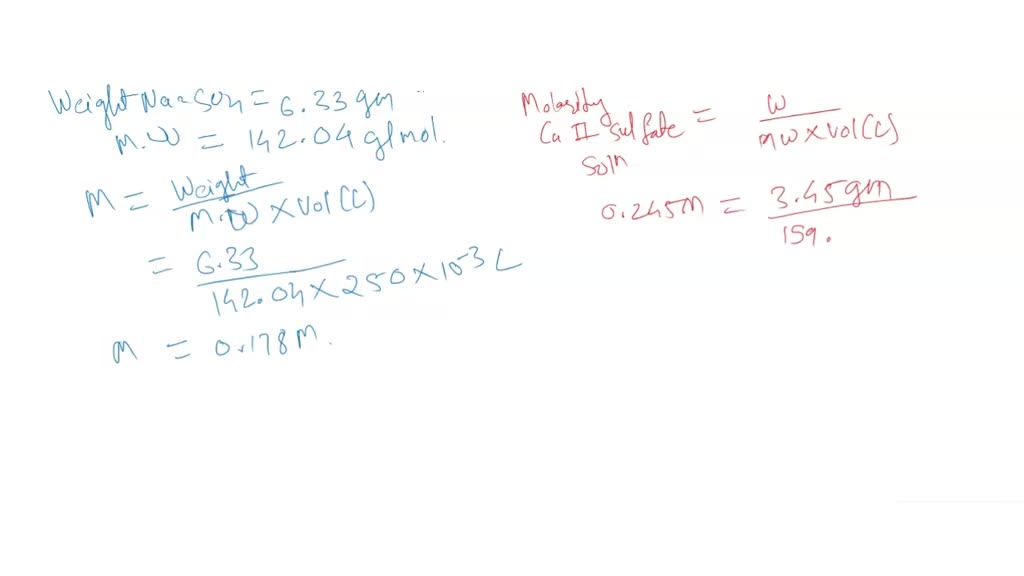 Weight Na2SO4 = 6.33 gm
M.W = 142.04 g/mol.
M = Weight / M.W × Vol(L)
= 6.33 / 142.04 × 250 × 10-3 L
M = 0.178 M.
Molarity
Cu II sulfate = W / MW × Vol(L)
Soln
0.245M = 3.45gm / 159.